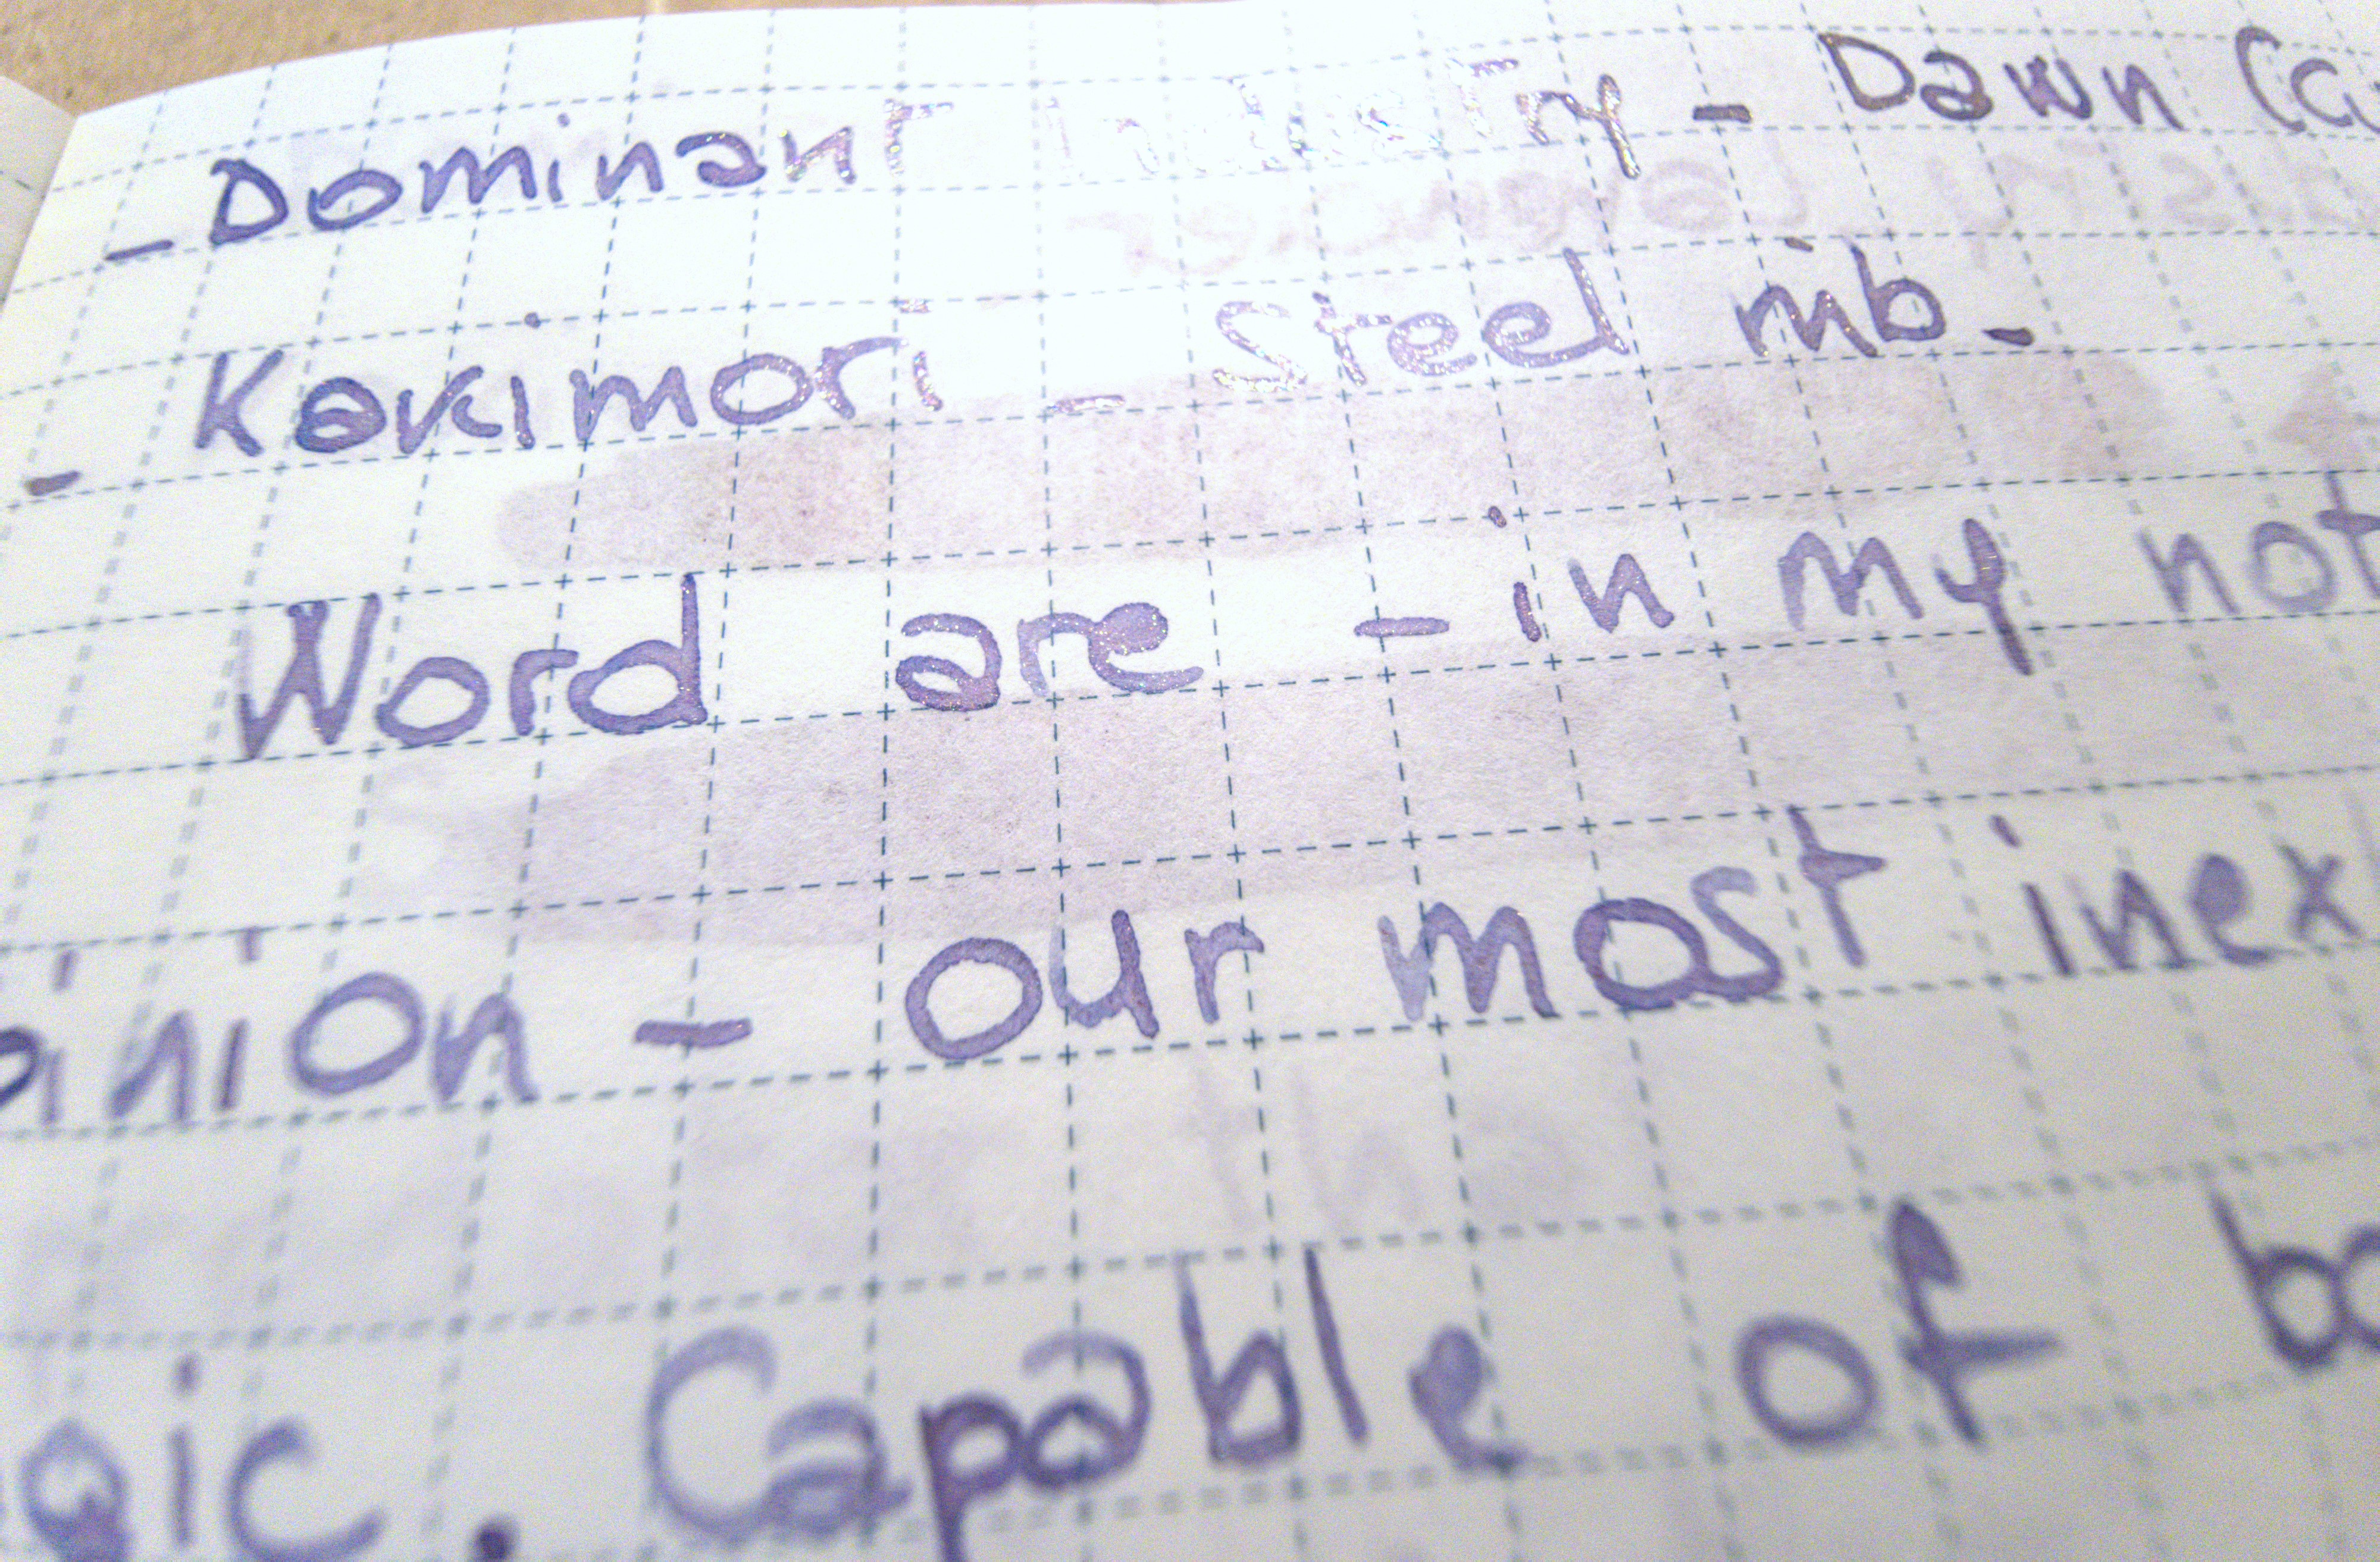 - Dominant Industry - Dawn (
- Kakimori - Steel nib -
Word are - in my not
inion - our most inex
gic. Capable of bo